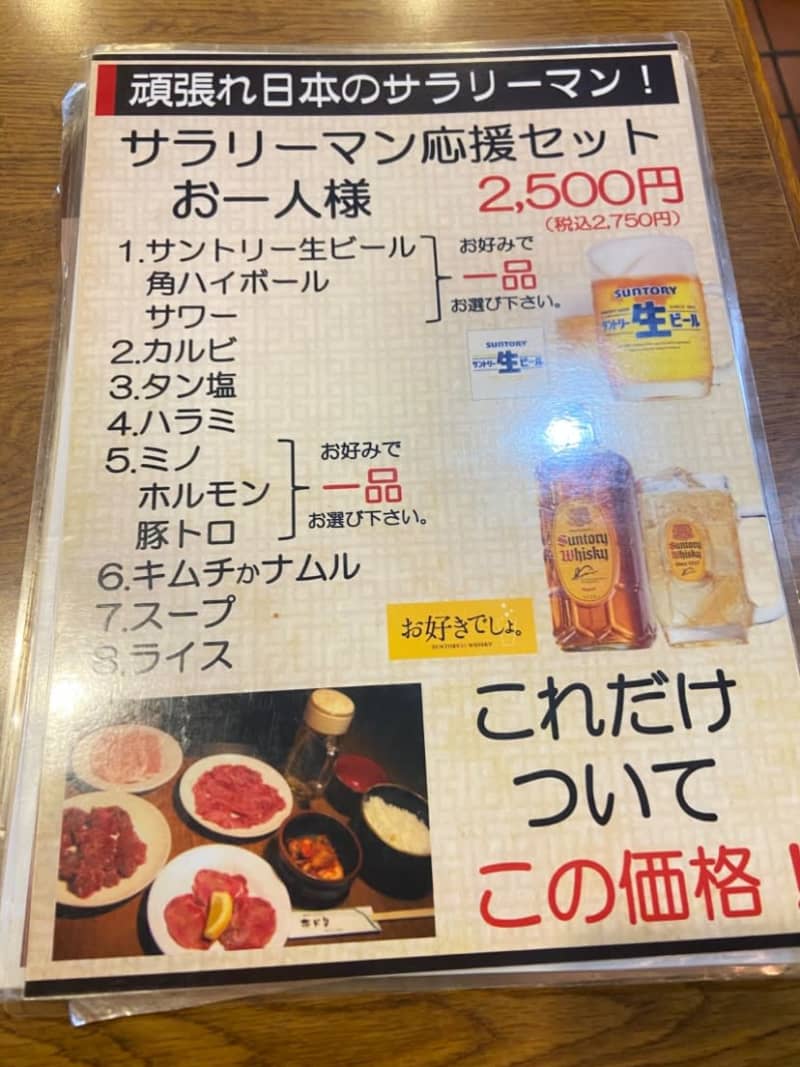 頑張れ日本のサラリーマン！
サラリーマン応援セット
お一人様 2,500円
(税込2,750円)
1.サントリー生ビール
角ハイボール
サワー
お好みで
一品
お選び下さい。
2.カルビ
3.タン塩
4.ハラミ
5.ミノ
ホルモン
豚トロ
お好みで
一品
お選び下さい。
6.キムチかナムル
7.スープ
8.ライス
SUNTORY
サントリー生ビール
SUNTORY
サントリー生ビール
Suntory
Whisky
Suntory
Whisky
お好きでしょ。
これだけ
ついて
この価格！